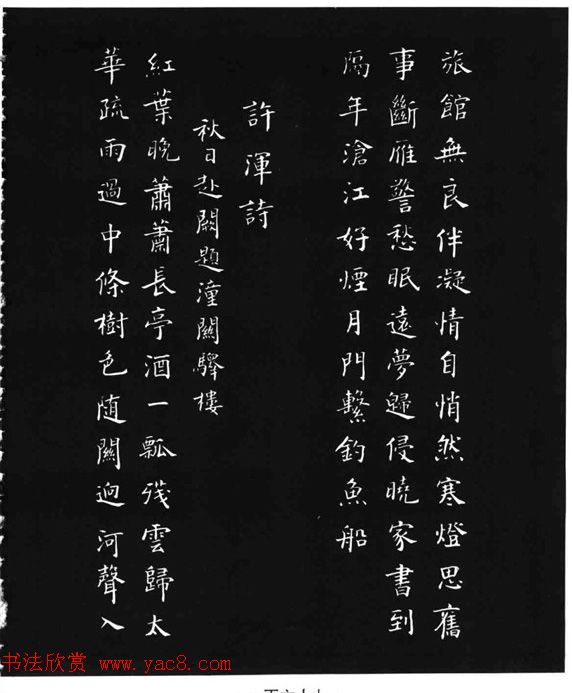 旅館無良伴凝情自悄然寒燈思舊
事斷雁警愁眠遠夢歸侵曉家書到
隔年滄江好煙月門繫釣魚船
許渾詩
秋日赴闕題潼關驛樓
紅葉晚蕭蕭長亭酒一瓢殘雲歸太
華疏雨過中條樹色隨關迥河聲入
书法欣赏 www.yac8.com